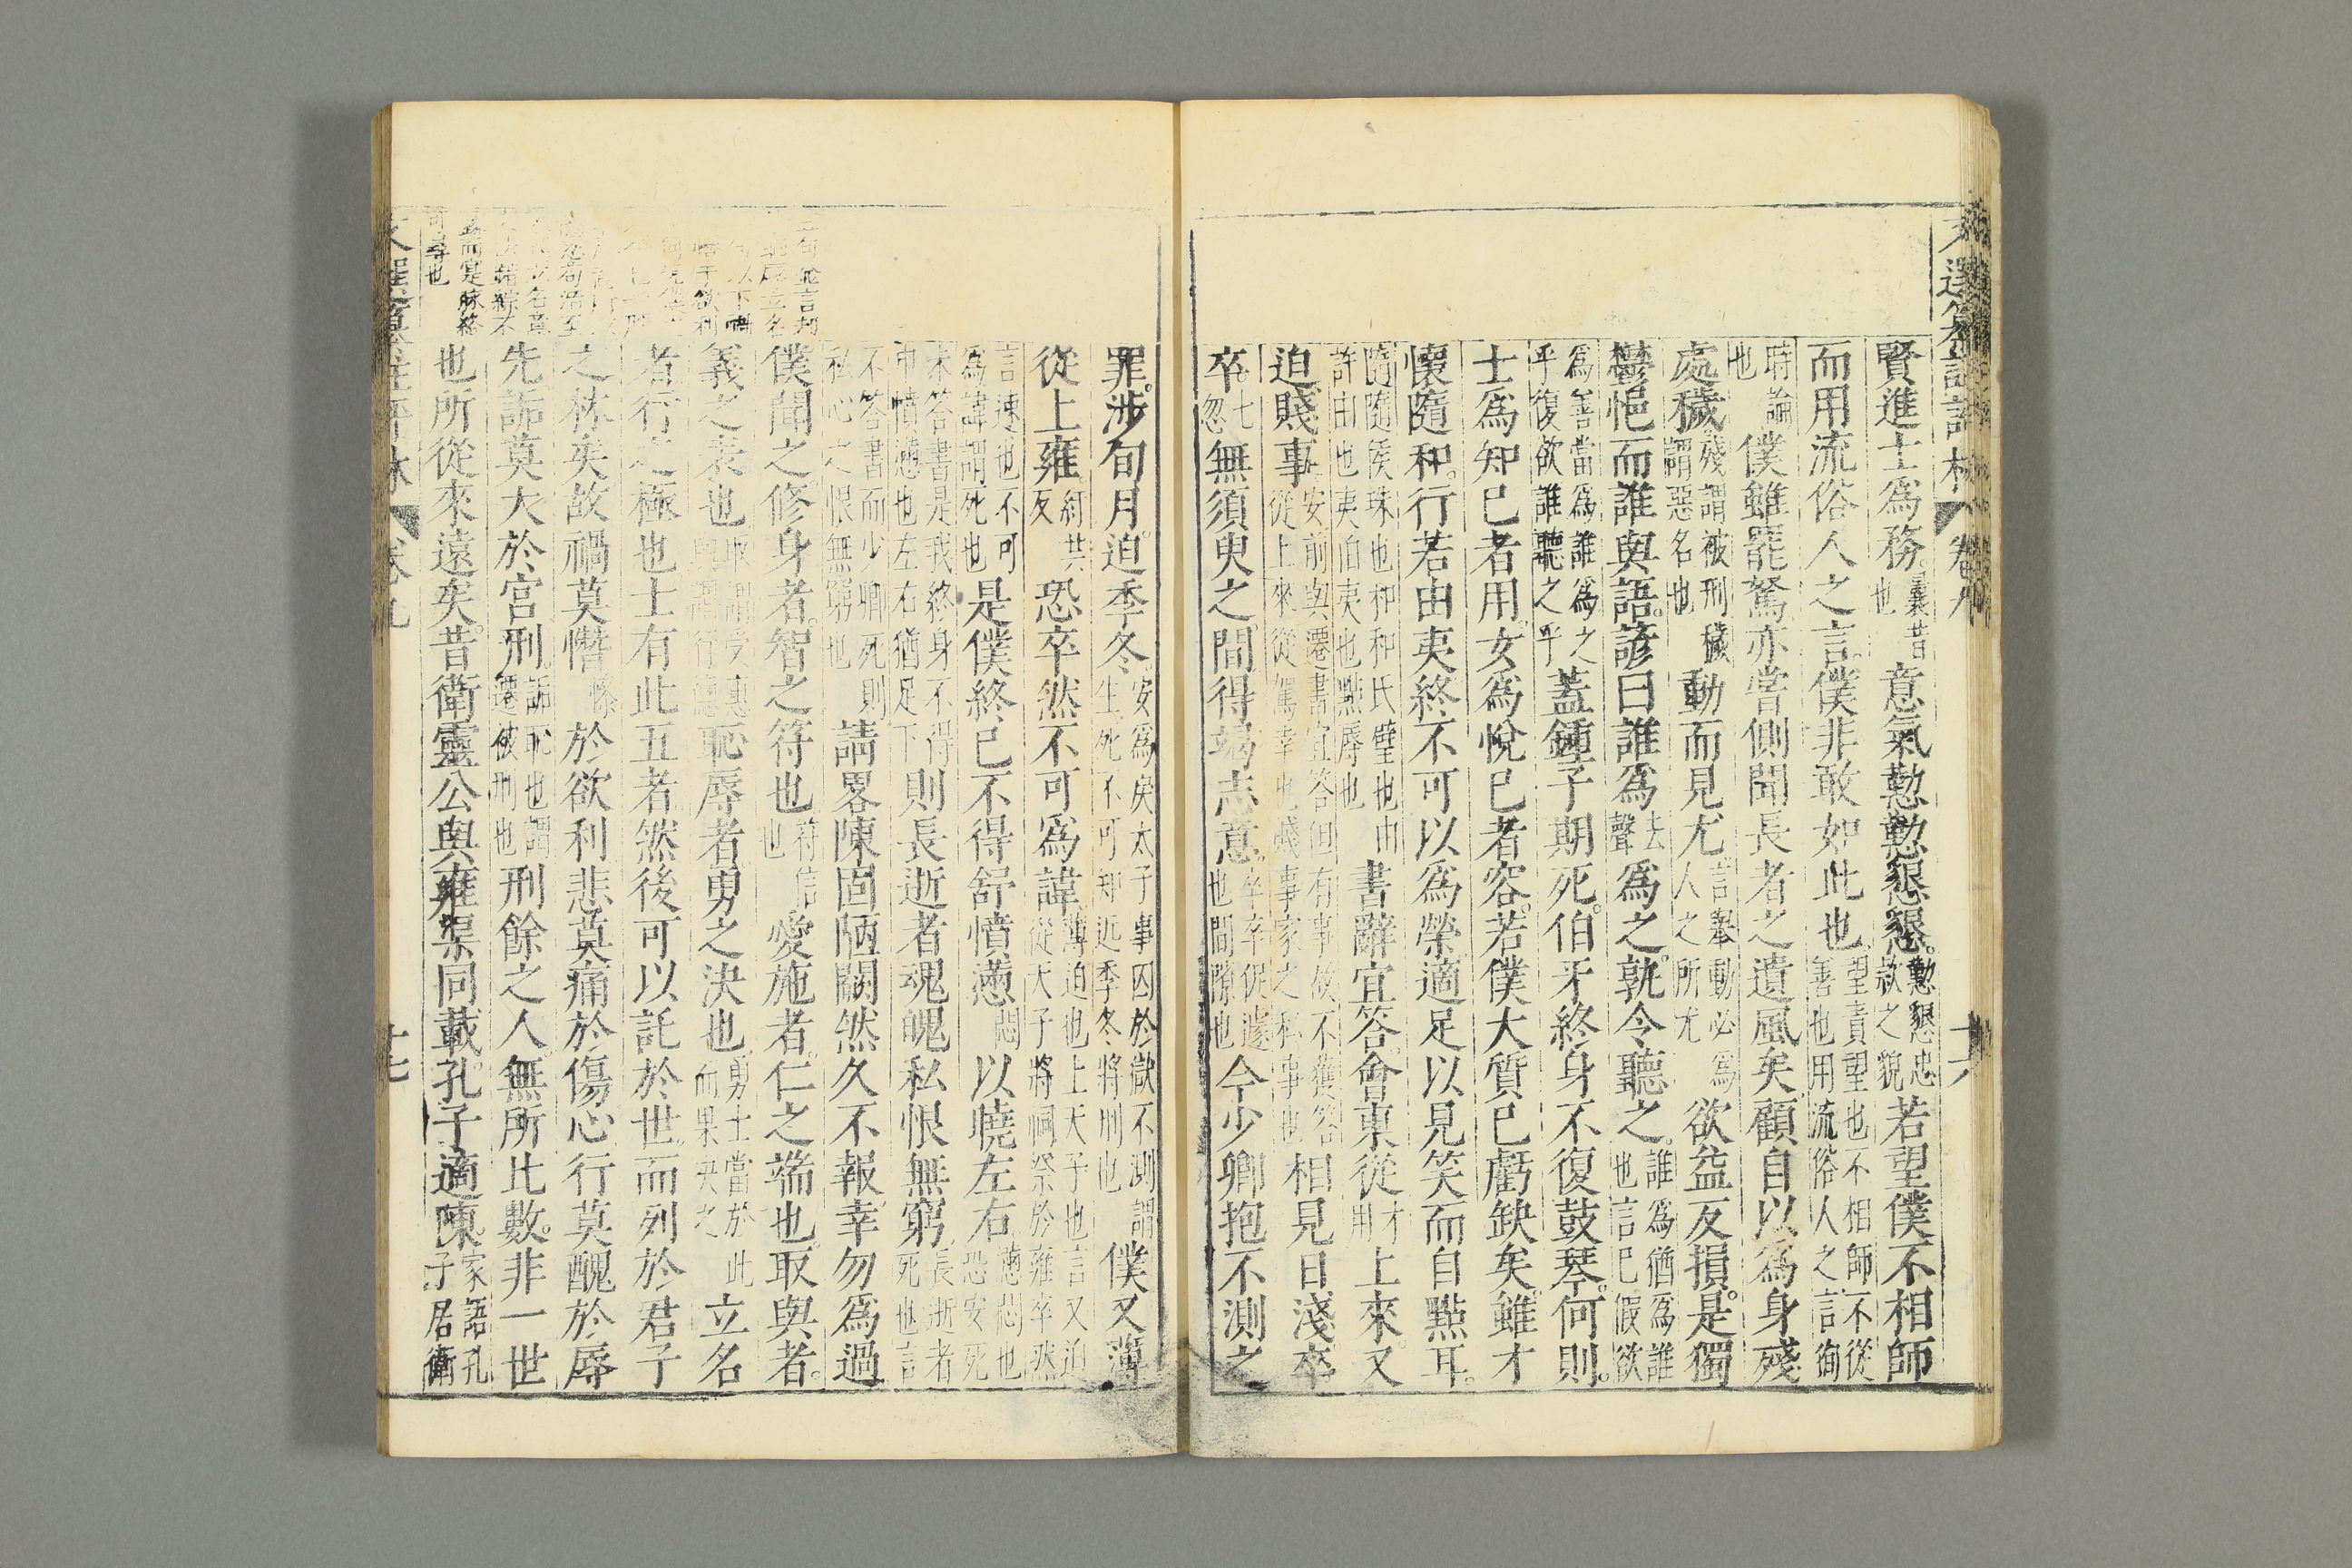 賢進士爲務義昔也意氣懃懃懇懇懃懇忠款之貌若望僕不相師
而用流俗人之言僕非敢如此也望責望也不相師不從善也用流俗人之言徇
時論也僕雖罷駑亦嘗側聞長者之遺風矣顧自以爲身殘
處穢殘謂被刑穢謂惡名也動而見尤言舉動必爲人之所尤欲益反損是獨
鬱悒而誰與語諺曰誰爲去聲爲之孰令聽之誰爲猶爲誰也言已假欲
爲善當爲誰爲之乎復欲誰聽之乎蓋鍾子期死伯牙終身不復鼓琴何則
士爲知已者用女爲悅已者容若僕大質已虧缺矣雖才
懷隨和行若由夷終不可以爲榮適足以見笑而自點耳
隨隨侯珠也和和氏璧也由許由也夷伯夷也點辱也書辭宜答會東從才用上來又
迫賤事安前與遷書宜答但有事故不獲答從上來從駕幸也賤事家之私事也相見日淺卒
卒七忽無須臾之間得竭志意卒卒促遽也間隙也今少卿抱不測之
罪涉旬月迫季冬安爲戾太子事囚於獄不測謂生死不可知近季冬將刑也僕又薄
從上雍紆共反恐卒然不可爲諱薄迫也上天子也言又迫從天子將祠祭於雍卒然
言速也不可爲諱謂死也是僕終已不得舒憤懣悶以曉左右懣悶也恐安死
未答書是我終身不得申憤懣也左右猶足下則長逝者魂魄私恨無窮長逝者死也言
不答書而少卿死則私心之恨無窮也請畧陳固陋闕然久不報幸勿爲過
僕聞之修身者智之符也符信也愛施者仁之端也取與者
義之表也恥辱者勇之決也勇士當於此而果決之立名
者行之極也士有此五者然後可以託於世而列於君子
之林矣故禍莫憯慘於欲利悲莫痛於傷心行莫醜於辱
先詬莫大於宮刑詬恥也謂遷被刑也刑餘之人無所比數非一世
也所從來遠矣昔衛靈公與雍渠同載孔子適陳家語孔子居衛